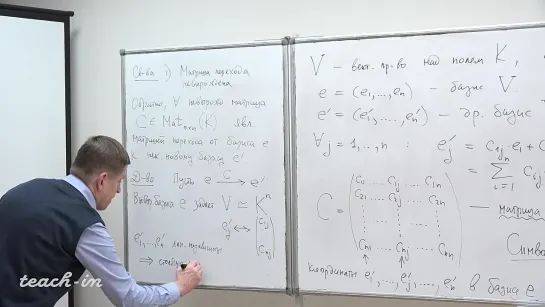 Св-ва 1) Матрица перехода
невырождена.
Обратно, ∀ невырожд матрица
C ∈ Mat_{n×n}(K) явл.
матрицей перехода от базиса e
к нек. новому базису e'
Д-во Пусть e →^C e'
Выбор базиса e задаёт V ≃ K^n
e'_j ↔ (C_{1j} ⋮ C_{nj})
e'_1, ..., e'_n лин. независимы
⇒ столбцы
V – вект. пр-во над полем K,
e = (e_1, ..., e_n) – базис V
e' = (e'_1, ..., e'_n) – др. базис
∀ j = 1, ..., n : e'_j = C_{1j} e_1 +
= ∑_{i=1}^{n} C_{ij}
C = (C_{11} ... C_{1j} ... C_{1n}
C_{21} ... C_{2j} ... C_{2n}
C_{n1} ... C_{nj} ... C_{nn})
– матрица
Симво
координаты e'_1, ..., e'_j, ..., e'_n в базисе e
teach-in